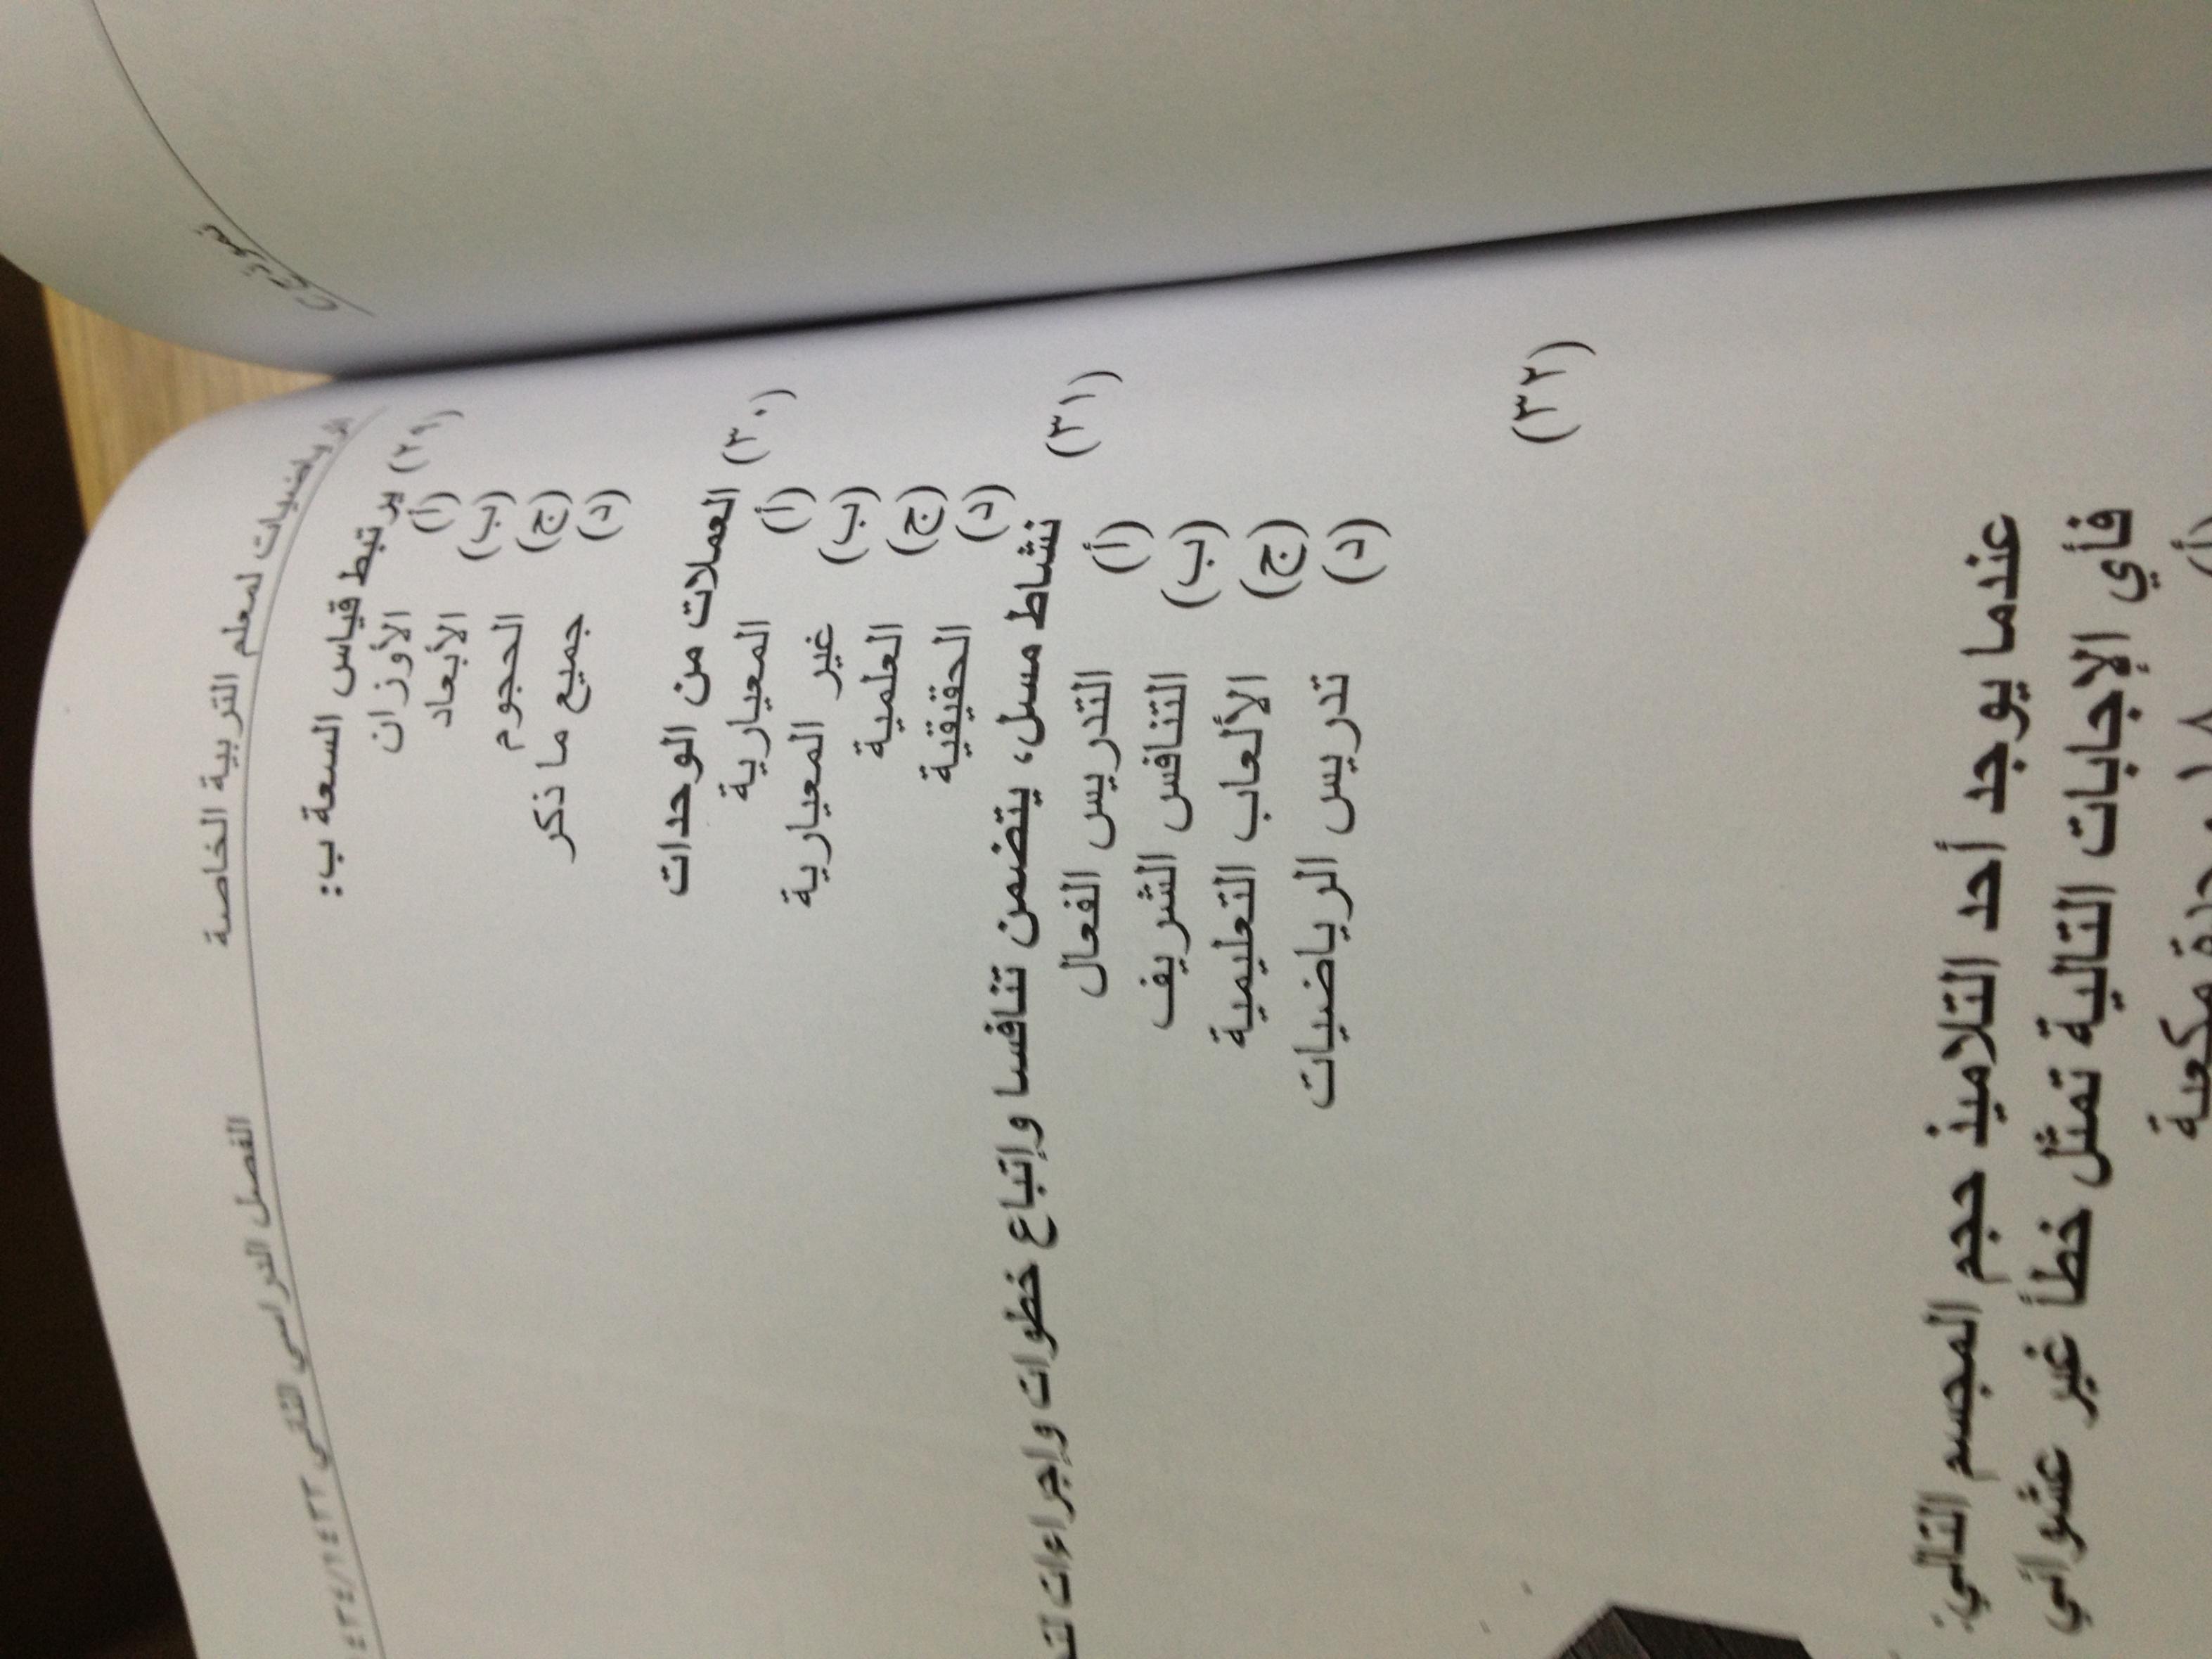 نموذج
الرياضيات لمعلم التربية الخاصة الفصل الدراسي الثاني
(٢٩) يرتبط قياس السعة ب:
(أ) الأوزان
(ب) الأبعاد
(ج) الحجوم
(د) جميع ما ذكر
(٣٠) العملات من الوحدات
(أ) المعيارية
(ب) غير المعيارية
(ج) العلمية
(د) الحقيقية
(٣١) نشاط مسل، يتضمن تنافسا وإتباع خطوات وإجراءات
(أ) التدريس الفعال
(ب) التنافس الشريف
(ج) الألعاب التعليمية
(د) تدريس الرياضيات
(٣٢)
عندما يوجد أحد التلاميذ حجم المجسم التالي:
فأي الإجابات التالية تمثل خطأ غير عشوائي
(أ) مكعبة